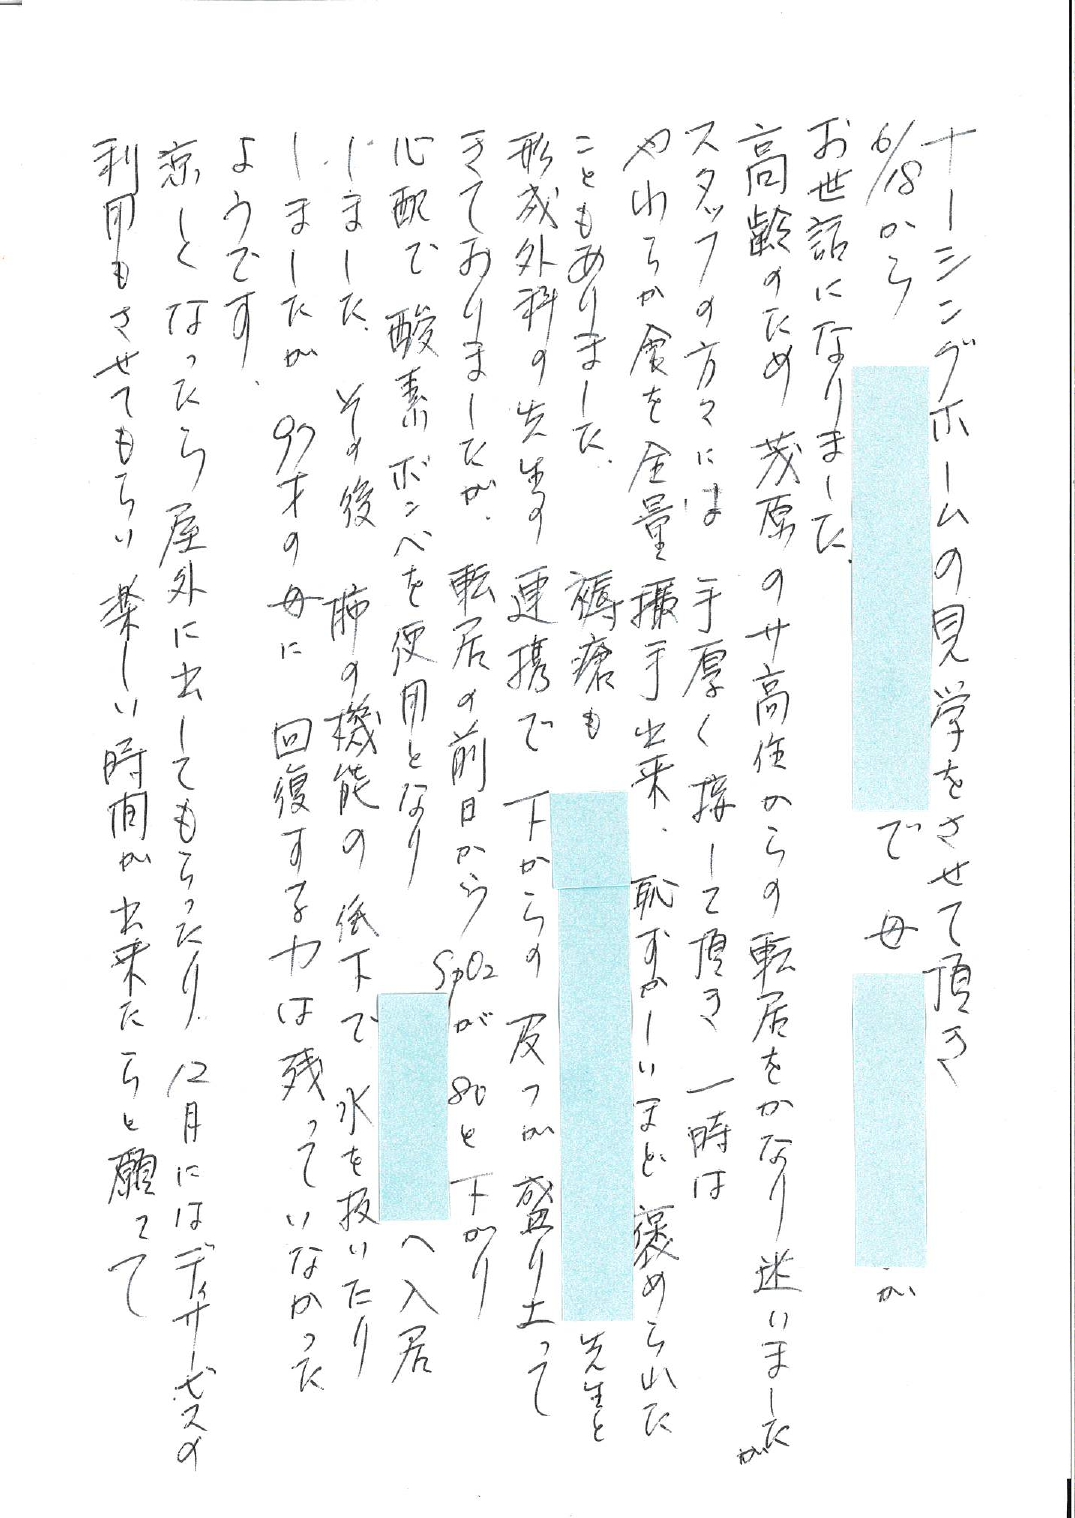 ナーシングホームの見学をさせて頂き
6/18から で 母 が
お世話になりました。
高齢のため 茂原のサ高住からの転居をかなり迷いましたが
スタッフの方々には 手厚く接して頂き 一時は
やわらか食を全量攝手出来、恥ずかしいまど褒められた
こともありました。 褥瘡も 先生と
形成外科の先生の 連携で 下からの 反つが盛り土って
きておりましたが、転居の前日から SpO2が 80と下がり
心配で 酸素ボンベを使用となり へ入居
しました。その後 肺の機能の低下で 水を抜いたり
しましたが 97才の母に 回復する力は残っていなかった
ようです、
涼しくなったら屋外に出してもらったり、12月にはディサービスの
利用もさせてもらい楽しい時間が出来たらと願って